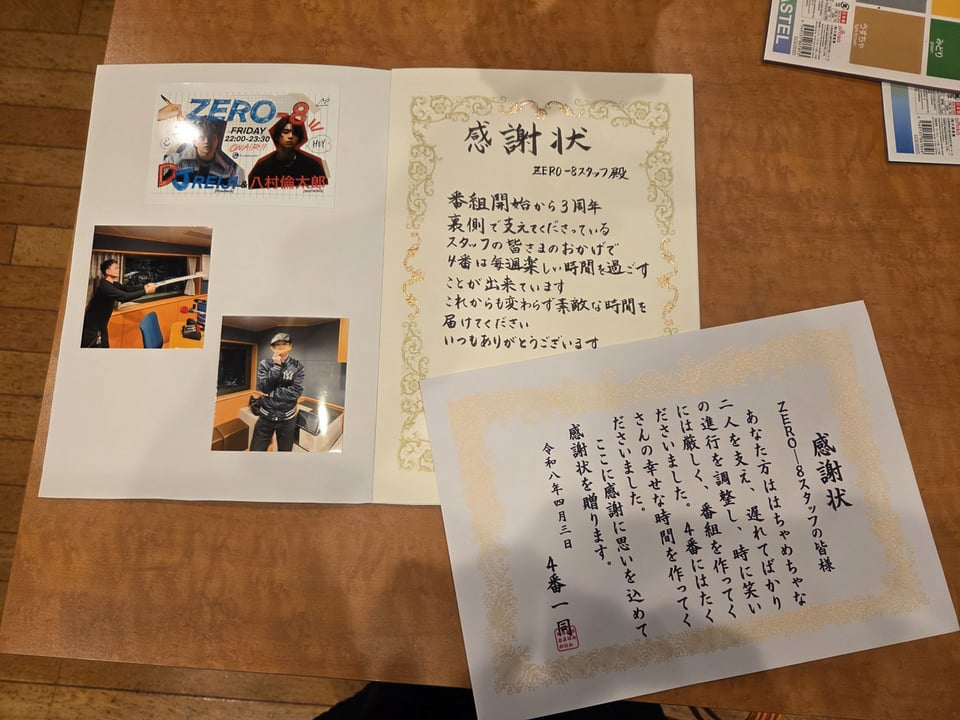 ZERO-8
FRIDAY
22:00-23:30
ON AIR!!
HEY
DJ REIJI & 八村倫太郎
感謝状
ZERO-8スタッフ殿
番組開始から3周年
裏側で支えてくださっている
スタッフの皆さまのおかげで
4番は毎週楽しい時間を過ごす
ことが出来ています
これからも変わらず素敵な時間を
届けてください
いつもありがとうございます
感謝状
ZERO―8スタッフの皆様
あなた方ははちゃめちゃな
二人を支え、遅れてばかり
の進行を調整し、時に笑い
には厳しく、番組を作ってく
ださいました。4番にはたく
さんの幸せな時間を作ってく
ださいました。
ここに感謝に思いを込めて
感謝状を贈ります。
令和八年四月三日
4番一同
PASTEL
うすちゃ
みどり